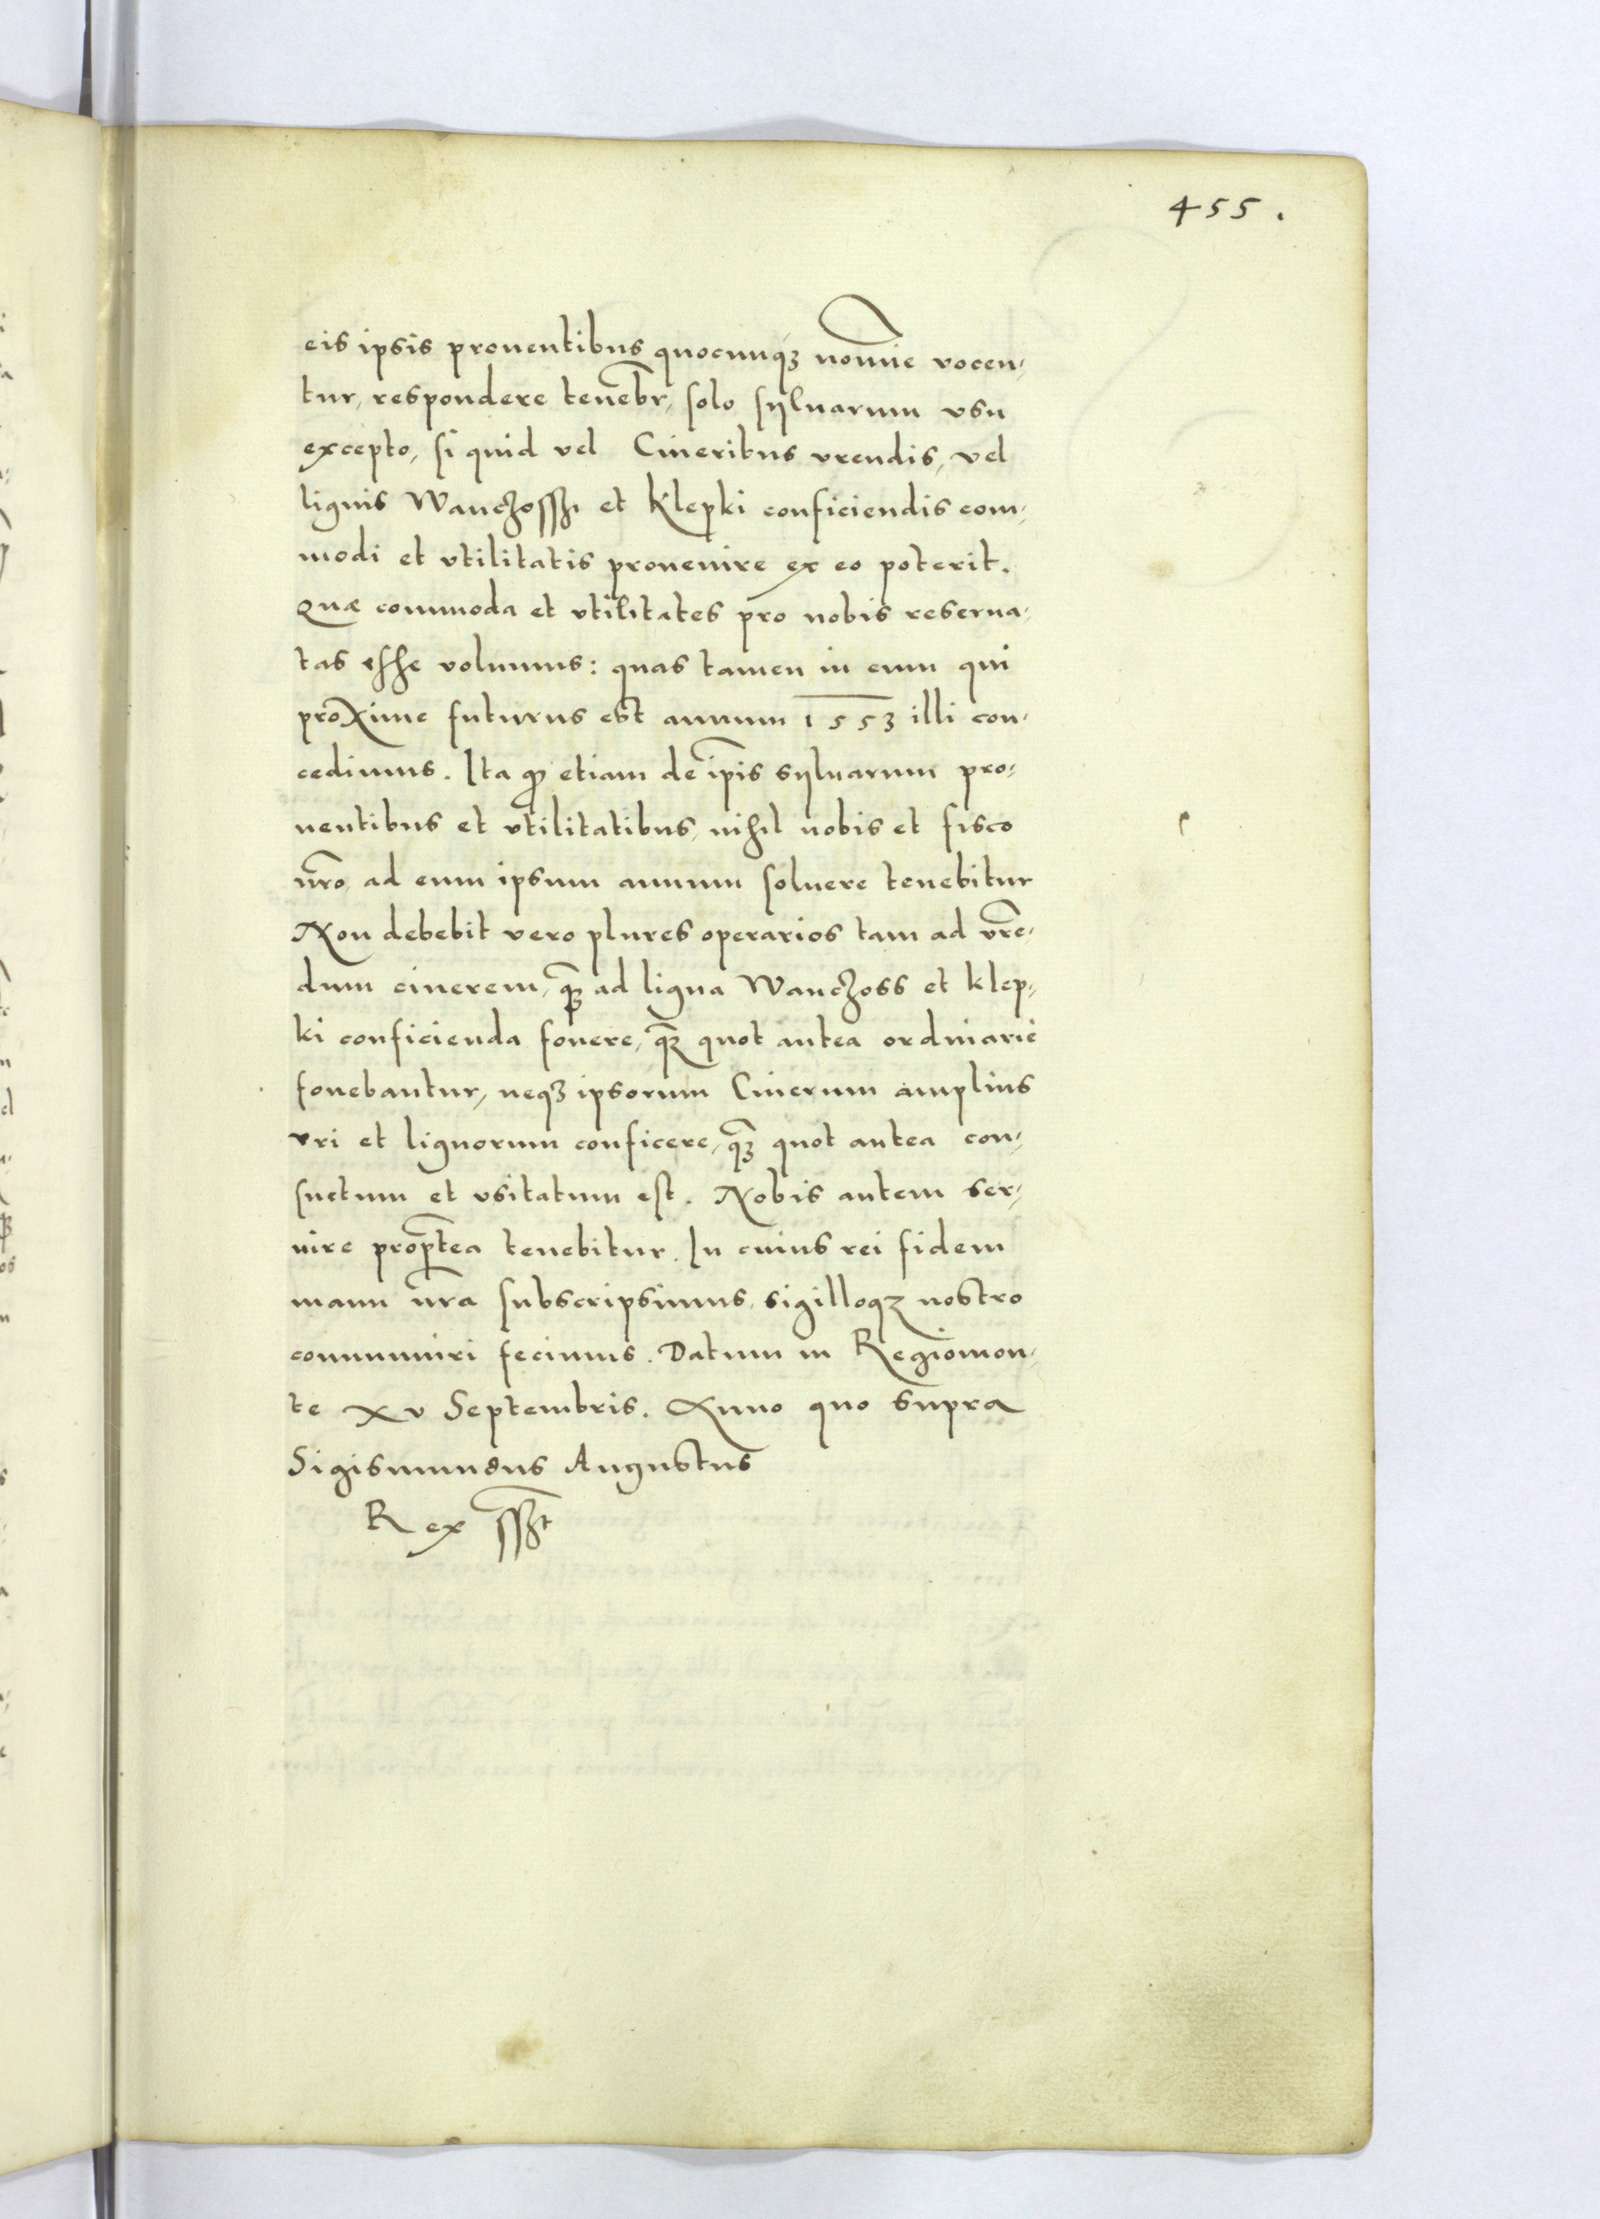 455.
eis ipsis prouentibus quocunqꝫ nomīe vocen-
tur, respondere tenebr̄, solo syluarum vsu
excepto, si quid vel Cineribus vrendis, vel
lignis Wanczosshi et Klepki conficiendis com-
modi et vtilitatis prouenire ex eo poterit.
Quæ commoda et vtilitates pro nobis reserua-
tas esse volumus: quas tamen in eum qui
proxime futurus est annum 1553 illi con-
cedimus. Ita ꝙ etiam de ip̄is syluarum pro-
uentibus et vtilitatibus, nihil nobis et fisco
nr̄o, ad eum ipsum annum soluere tenebitur
Non debebit vero plures operarios tam ad vrē-
dum cinerem, qꝫ̄ ad ligna Wanczoss et klep-
ki conficienda fouere, qꝫ̄ quot antea ordinarie
fouebantur, neqꝫ ipsorum Cinerum amplius
vri et lignorum conficere, qꝫ̄ quot antea con-
suetum et vsitatum est. Nobis autem ser-
uire propt̄ea tenebitur. In cuius rei fidem
manu nr̄a subscripsimus, sigilloqꝫ nostro
communiri fecimus. Datum in Regiomon-
te xv Septembris. Anno quo supra
Sigismundus Augustus
Rex sszt̄